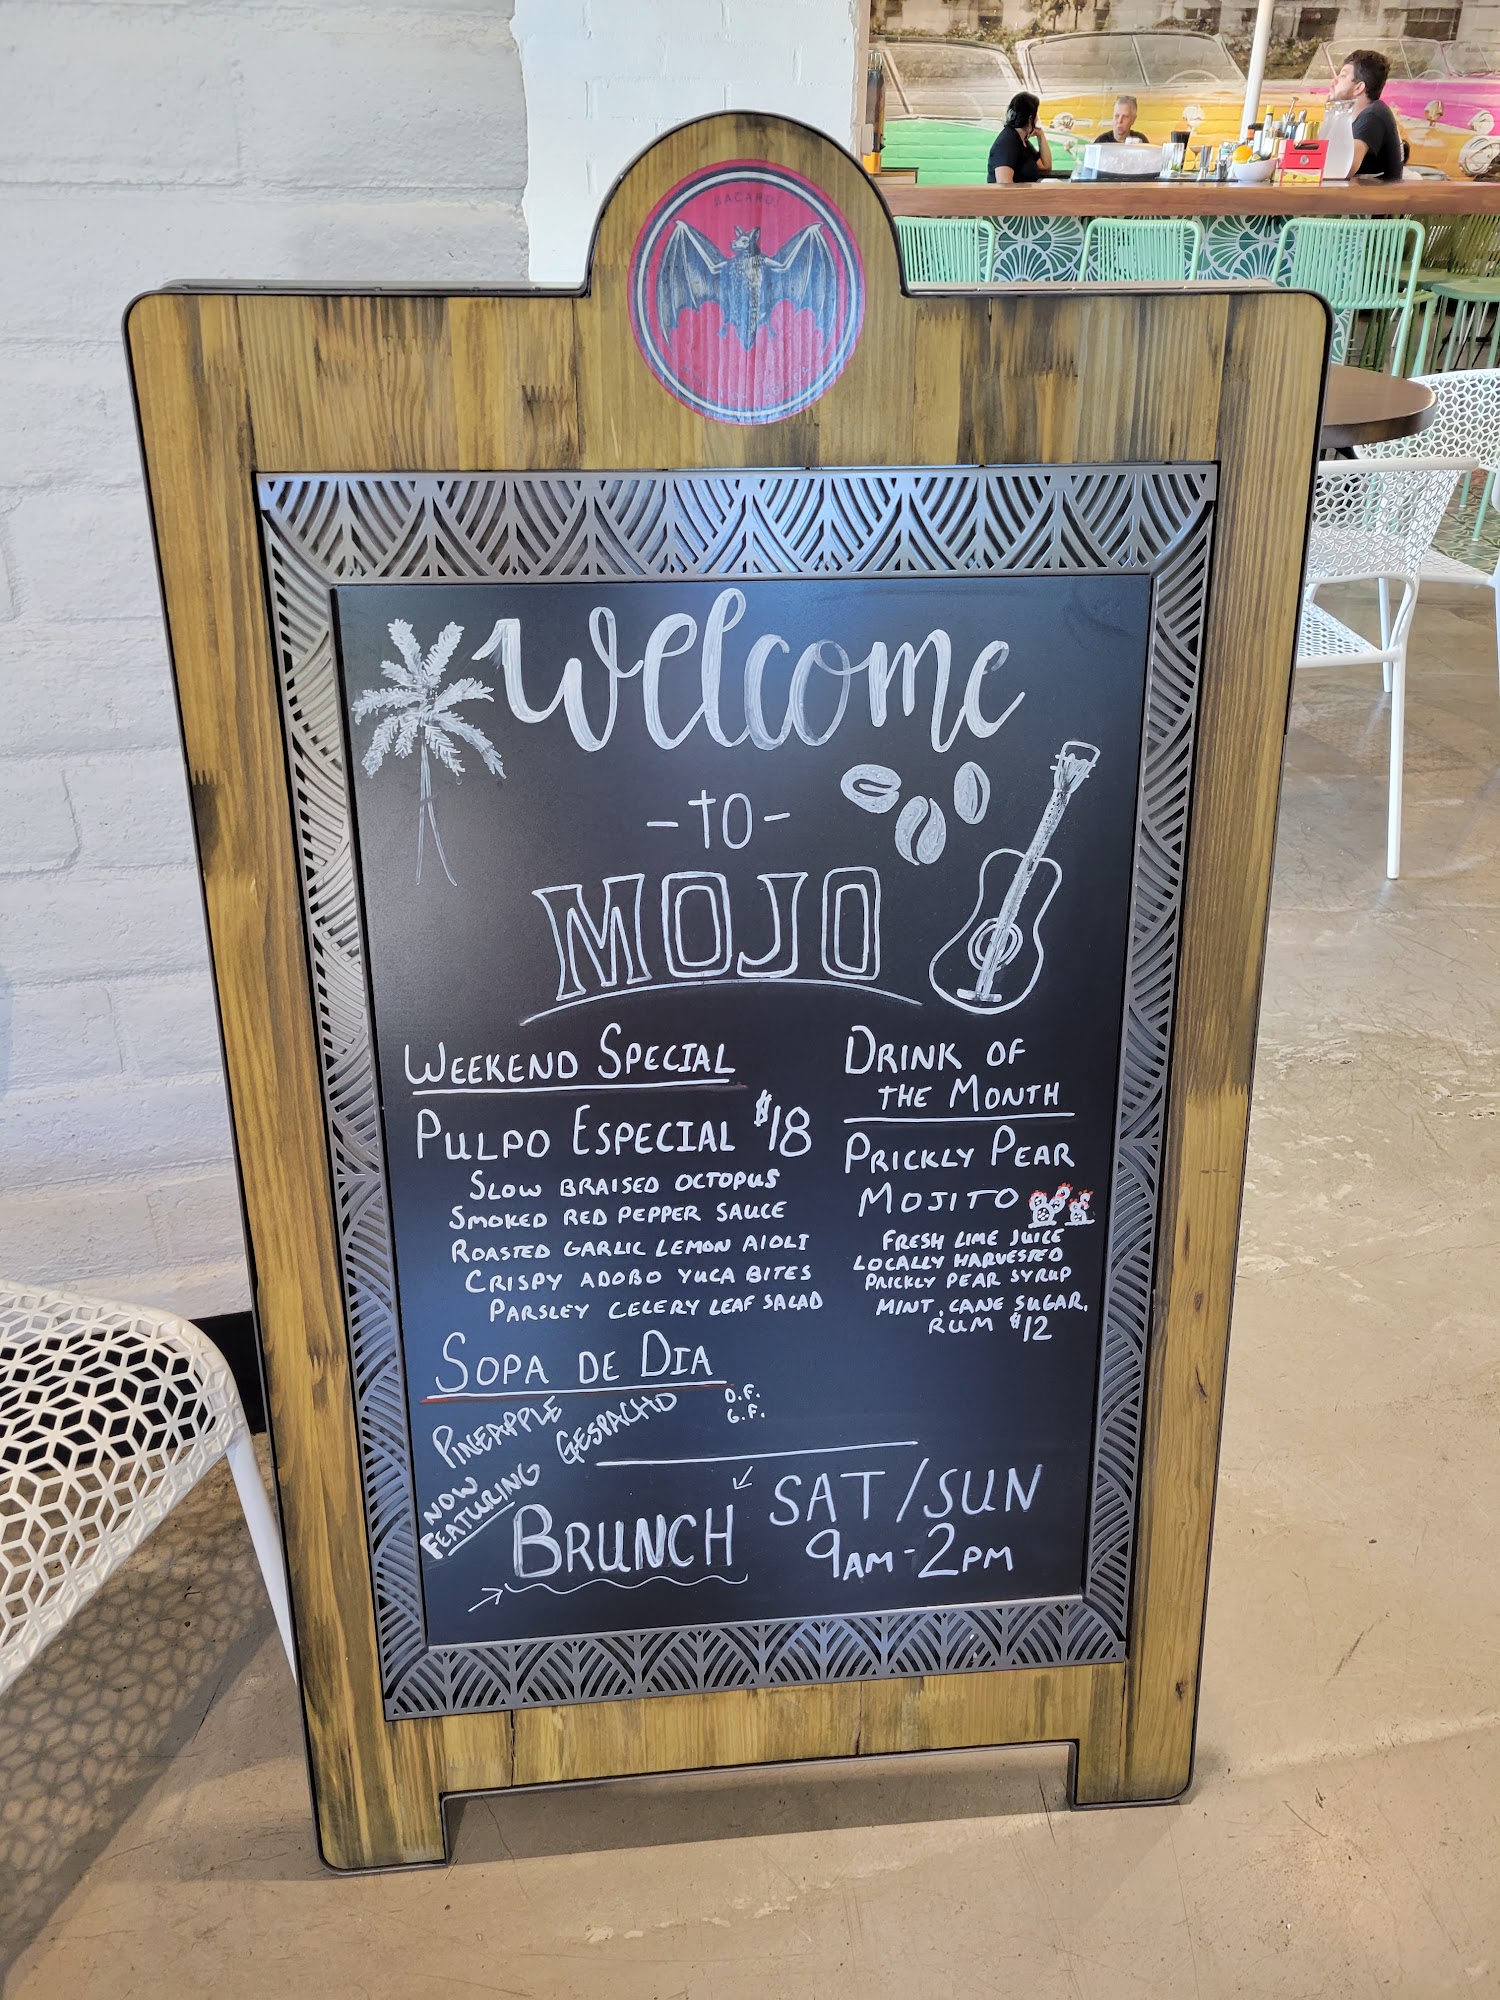 BACARDI
Welcome
-TO-
MOJO
WEEKEND SPECIAL
PULPO ESPECIAL $18
SLOW BRAISED OCTOPUS
SMOKED RED PEPPER SAUCE
ROASTED GARLIC LEMON AIOLI
CRISPY ADOBO YUCA BITES
PARSLEY CELERY LEAF SALAD
SOPA DE DIA
PINEAPPLE
GESPACHO
D.F.
G.F.
DRINK OF
THE MONTH
PRICKLY PEAR
MOJITO
FRESH LIME JUICE
LOCALLY HARVESTED
PRICKLY PEAR SYRUP
MINT, CANE SUGAR,
RUM $12
NOW
FEATURING
BRUNCH
SAT/SUN
9AM-2PM